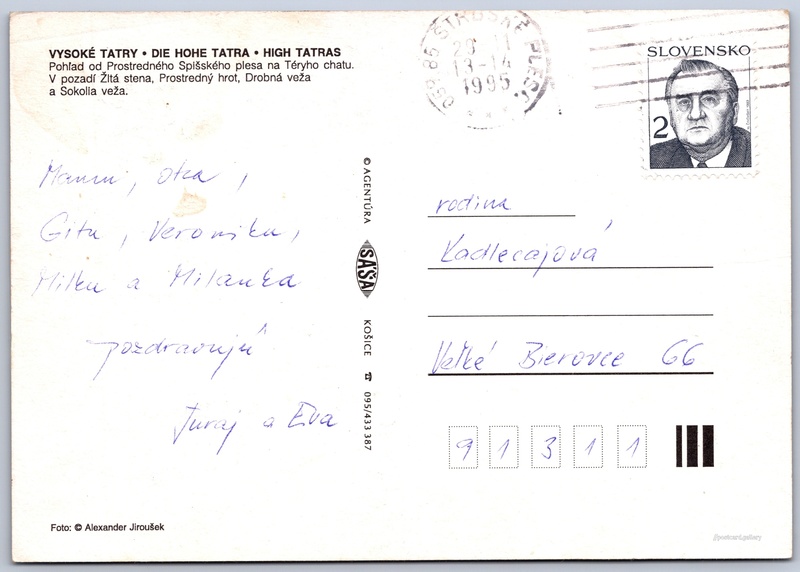 VYSOKÉ TATRY • DIE HOHE TATRA • HIGH TATRAS
Pohľad od Prostredného Spišského plesa na Téryho chatu.
V pozadí Žltá stena, Prostredný hrot, Drobná veža
a Sokolia veža.
Mamu, otca,
Gitu, Veroniku,
Milku a Milanka
pozdravujú
Juraj a Eva
Foto: © Alexander Jiroušek
© AGENTÚRA
SAŠA
KOŠICE
095/433 387
ŠTRBSKÉ PLESO
13-14
1995
SLOVENSKO
2
rodina
Kadlecajová
Veľké Bierovce 66
91311
postcard.gallery